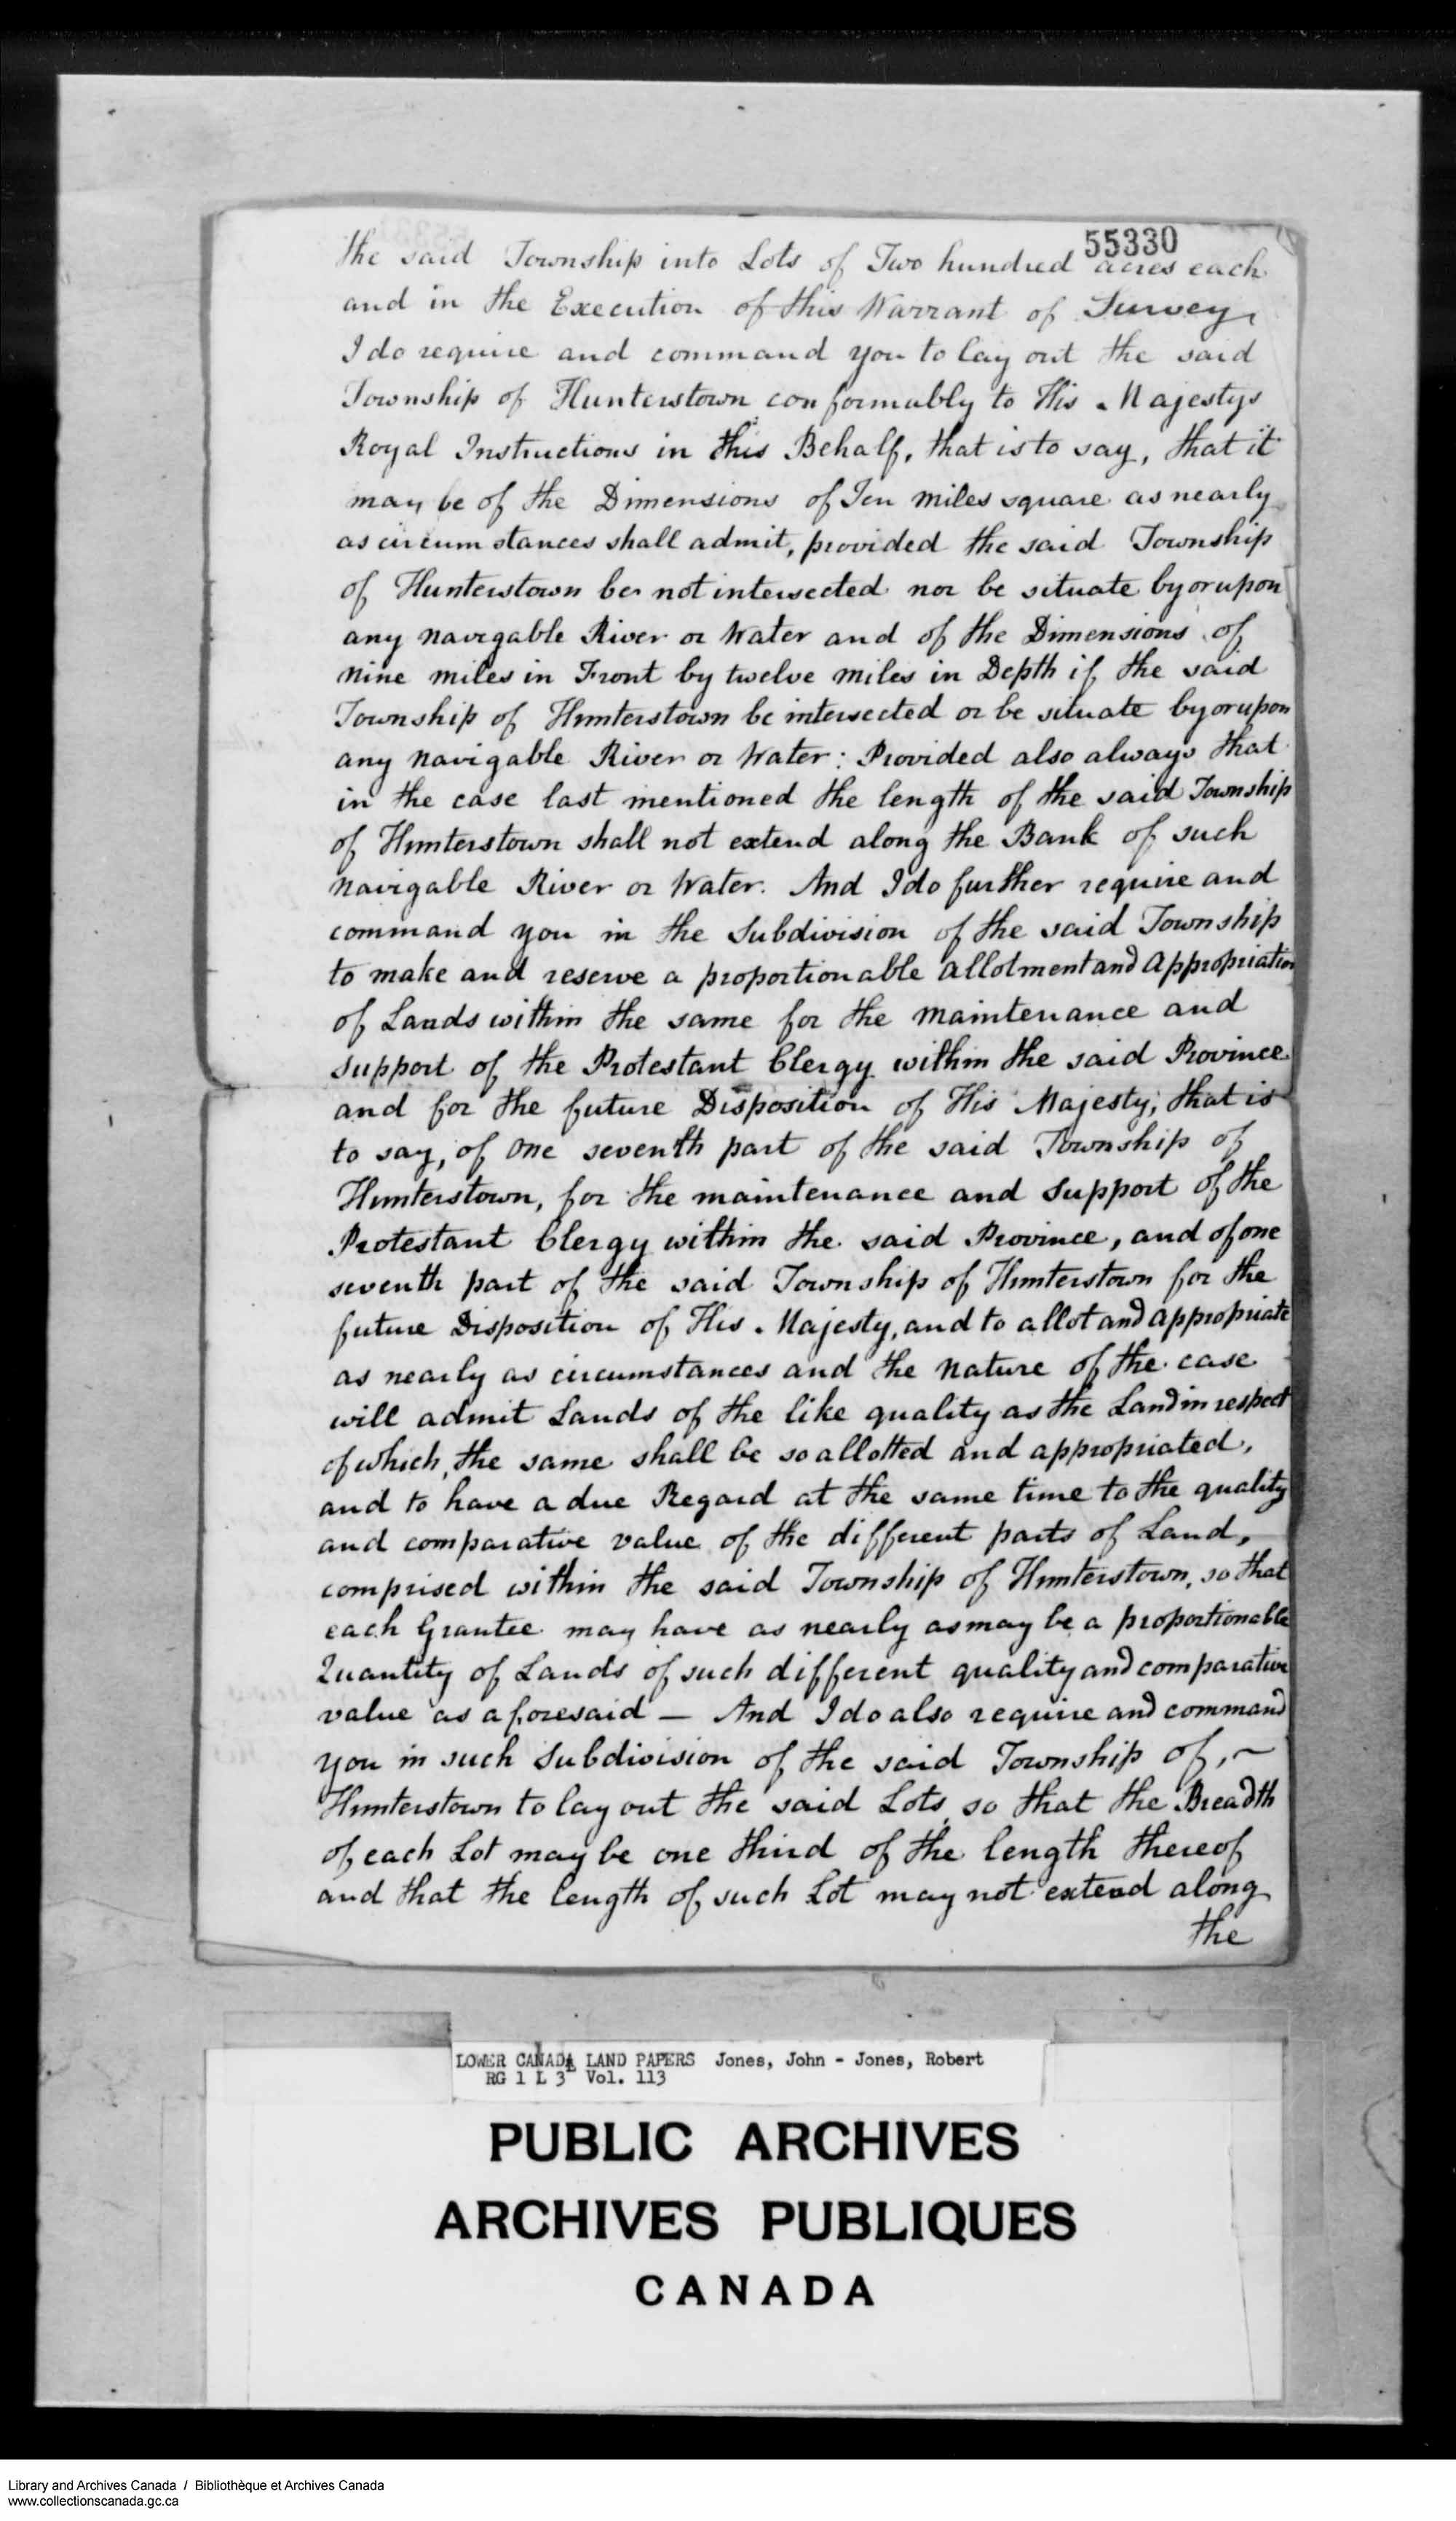 55330
the said Township into Lots of Two hundred acres each
and in the Execution of this Warrant of Survey,
I do require and command you to lay out the said
Township of Hunterstown conformably to His Majestys
Royal Instructions in this Behalf, that is to say, that it
may be of the Dimensions of Ten miles square as nearly
as circumstances shall admit, provided the said Township
of Hunterstown be not intersected nor be situate by or upon
any navigable River or Water and of the Dimensions of
nine miles in Front by twelve miles in Depth if the said
Township of Hunterstown be intersected or be situate by or upon
any navigable River or Water: Provided also always that
in the case last mentioned the length of the said Township
of Hunterstown shall not extend along the Bank of such
navigable River or Water. And I do further require and
command you in the Subdivision of the said Township
to make and reserve a proportionable allotment and Appropriation
of Lands within the same for the maintenance and
support of the Protestant Clergy within the said Province
and for the future Disposition of His Majesty, that is
to say, of one seventh part of the said Township of
Hunterstown, for the maintenance and support of the
Protestant Clergy within the said Province, and of one
seventh part of the said Township of Hunterstown for the
future Disposition of His Majesty, and to allot and appropriate
as nearly as circumstances and the nature of the case
will admit Lands of the like quality as the Land in respect
of which, the same shall be so allotted and appropriated,
and to have a due Regard at the same time to the quality
and comparative value of the different parts of Land,
comprised within the said Township of Hunterstown, so that
each Grantee may have as nearly as may be a proportionable
Quantity of Lands of such different quality and comparative
value as aforesaid — And I do also require and command
you in such Subdivision of the said Township of, ~
Hunterstown to lay out the said Lots, so that the Breadth
of each Lot may be one third of the length thereof
and that the length of such Lot may not extend along
the
LOWER CANADA LAND PAPERS Jones, John - Jones, Robert
RG 1 L 3 Vol. 113
PUBLIC ARCHIVES
ARCHIVES PUBLIQUES
CANADA
Library and Archives Canada / Bibliothèque et Archives Canada
www.collectionscanada.gc.ca